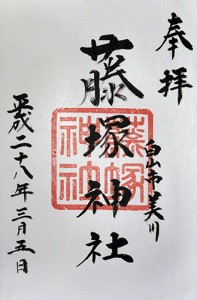 奉拝
白山市美川
藤塚神社
藤塚
神社
平成二十八年三月五日